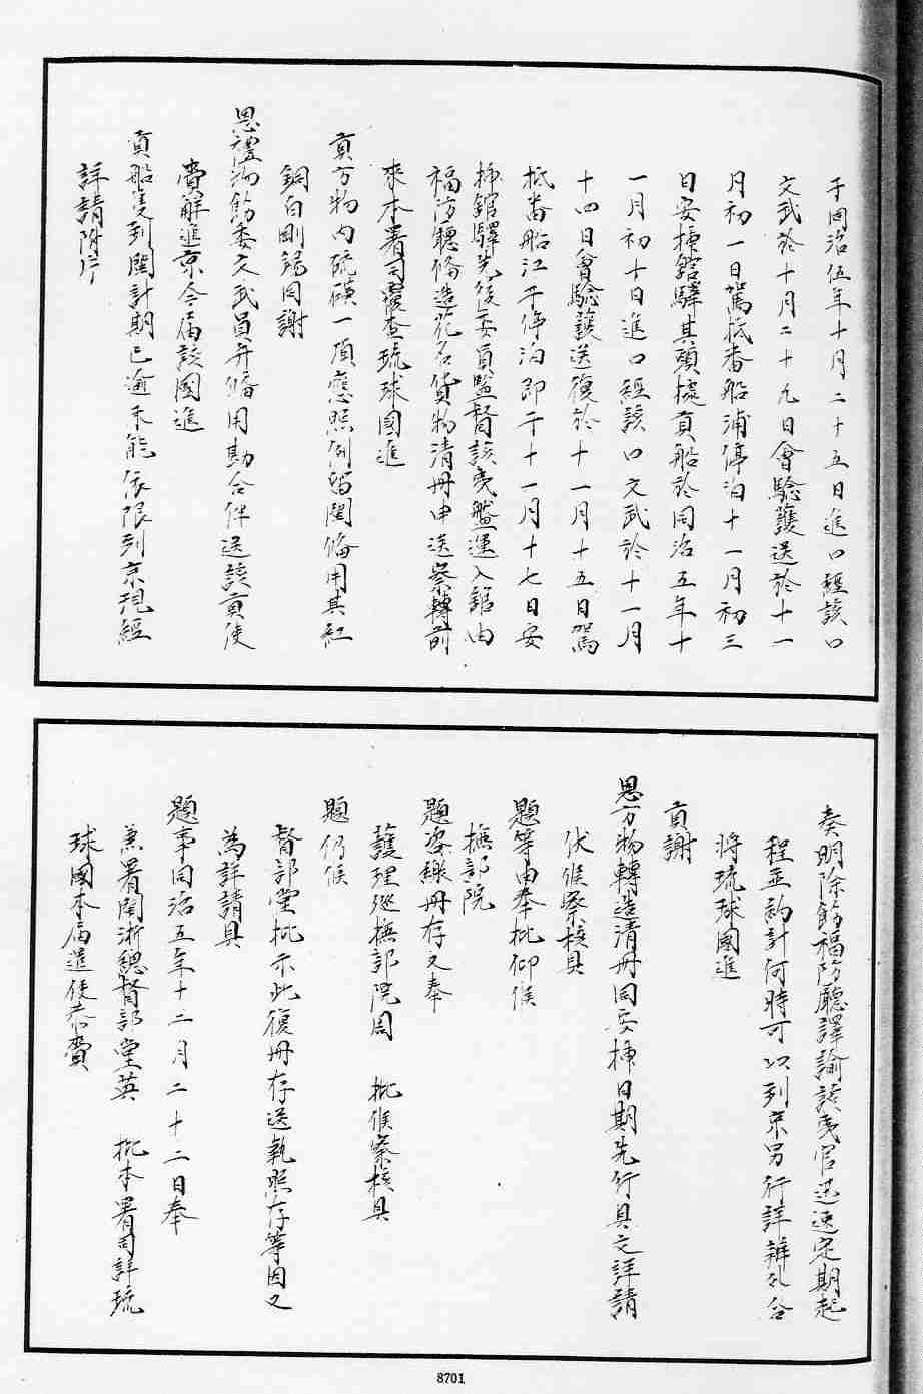 于同治伍年十月二十五日進口經該口
文武於十月二十九日會驗護送於十一
月初一日駕抵番船浦停泊十一月初三
日安插館驛其頭號貢船於同治五年十
一月初十日進口經該口文武於十一月
十四日會驗護送復於十一月十五日駕
抵番船江干停泊即于十一月十七日安
插館驛先後委員監督該夷盤運入館由
福防廳備造花名貨物清冊申送察轉前
來本署司覆查琉球國進
貢方物內硫磺一項應照例留閩備用其紅
銅白剛錫同謝
恩禮物飭委文武員弁備用勘合伴送該貢使
賫解進京今届該國進
貢船隻到閩計期已逾未能依限到京現經
詳請附片
奏明除飭福防廳譯諭該夷官迅速定期起
程並約計何時可以到京另行詳辦外合
將琉球國進
貢謝
恩方物轉造清冊同安插日期先行具文詳請
伏候察核具
題等由奉批仰候
撫部院
題咨繳冊存又奉
護理巡撫部院周 批候察核具
題仍候
督部堂批示此復冊存送執照存等因又
為詳請具
題事同治五年十二月二十二日奉
兼署閩浙總督部堂英 批本署司詳琉
球國本届進使恭賫
8701